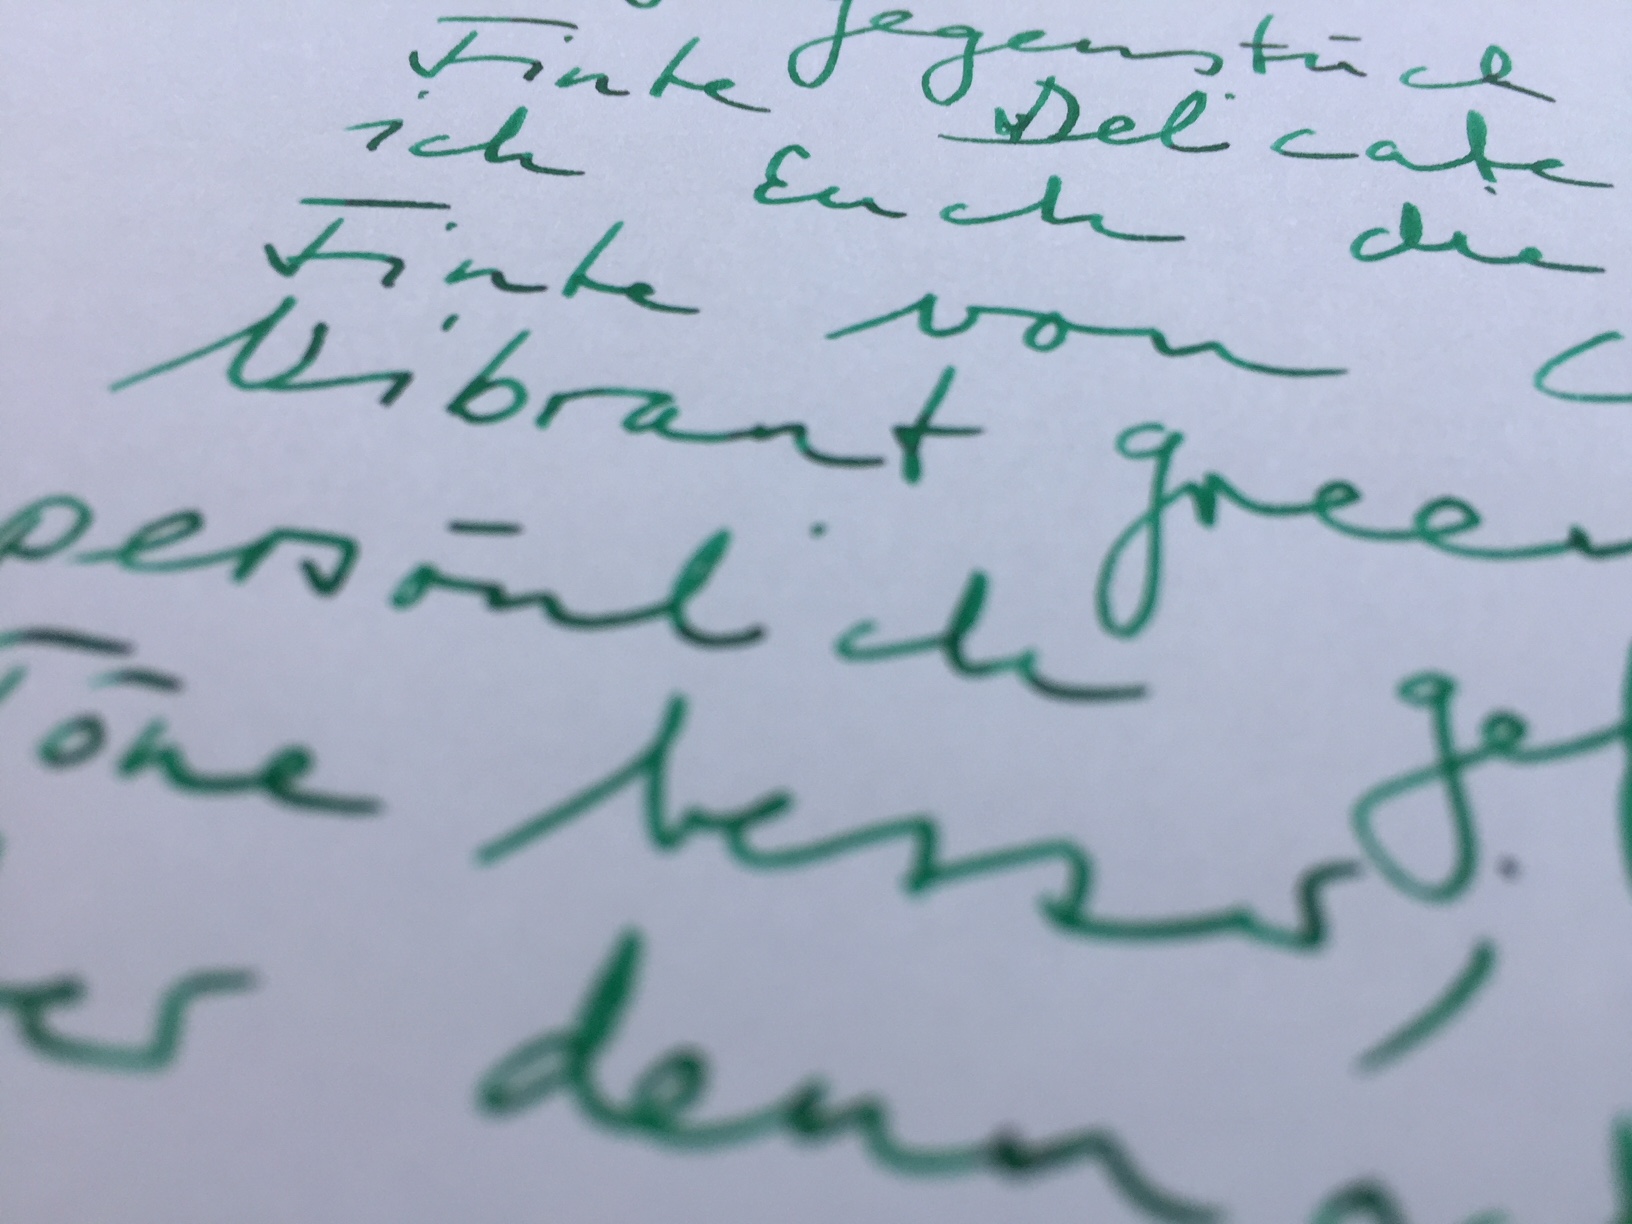 gegenstück
Tinte Delicate
ich Euch die
Tinte von C
Vibrant green
persönlich gef
Töne besser,
er denn